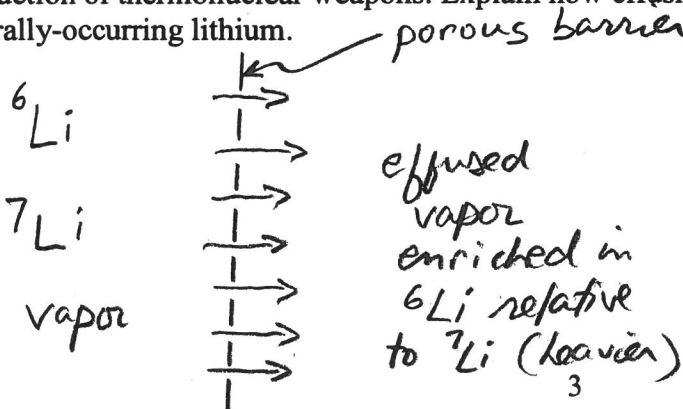 uction of thermonuclear weapons. Explain how effusi
rally-occurring lithium.
porous barrier
⁶Li
⁷Li
vapor
effused
vapor
enriched in
⁶Li relative
to ⁷Li (heavier)
3